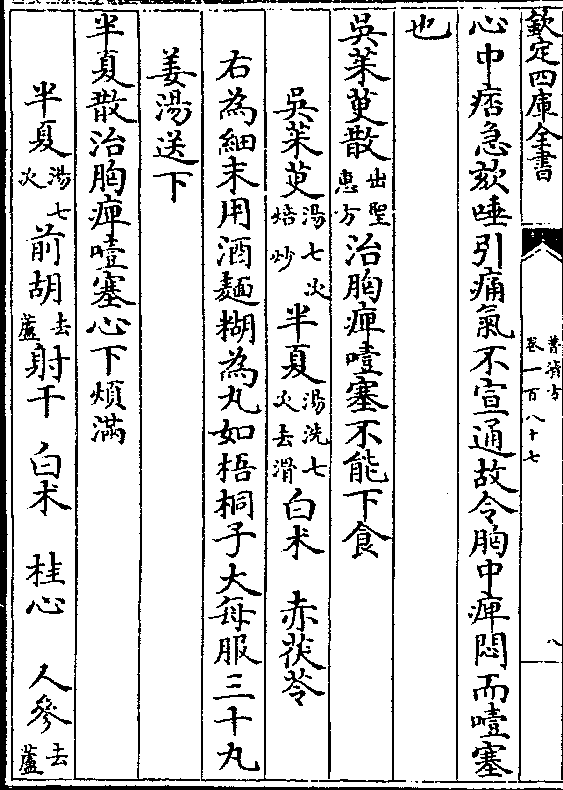 欽定四庫全書
普濟方
卷一百八十七
八
心中痞急欬唾引痛氣不宣通故令胸中痺悶而噎塞
也
吳茱萸散出聖惠方治胸痺噎塞不能下食
吳茱萸湯七次焙炒 半夏湯洗七次去滑 白术 赤茯苓
右為細末用酒麵糊為丸如梧桐子大每服三十丸
姜湯送下
半夏散治胸痺噎塞心下煩滿
半夏湯七次 前胡去蘆 射干 白术 桂心 人參去蘆